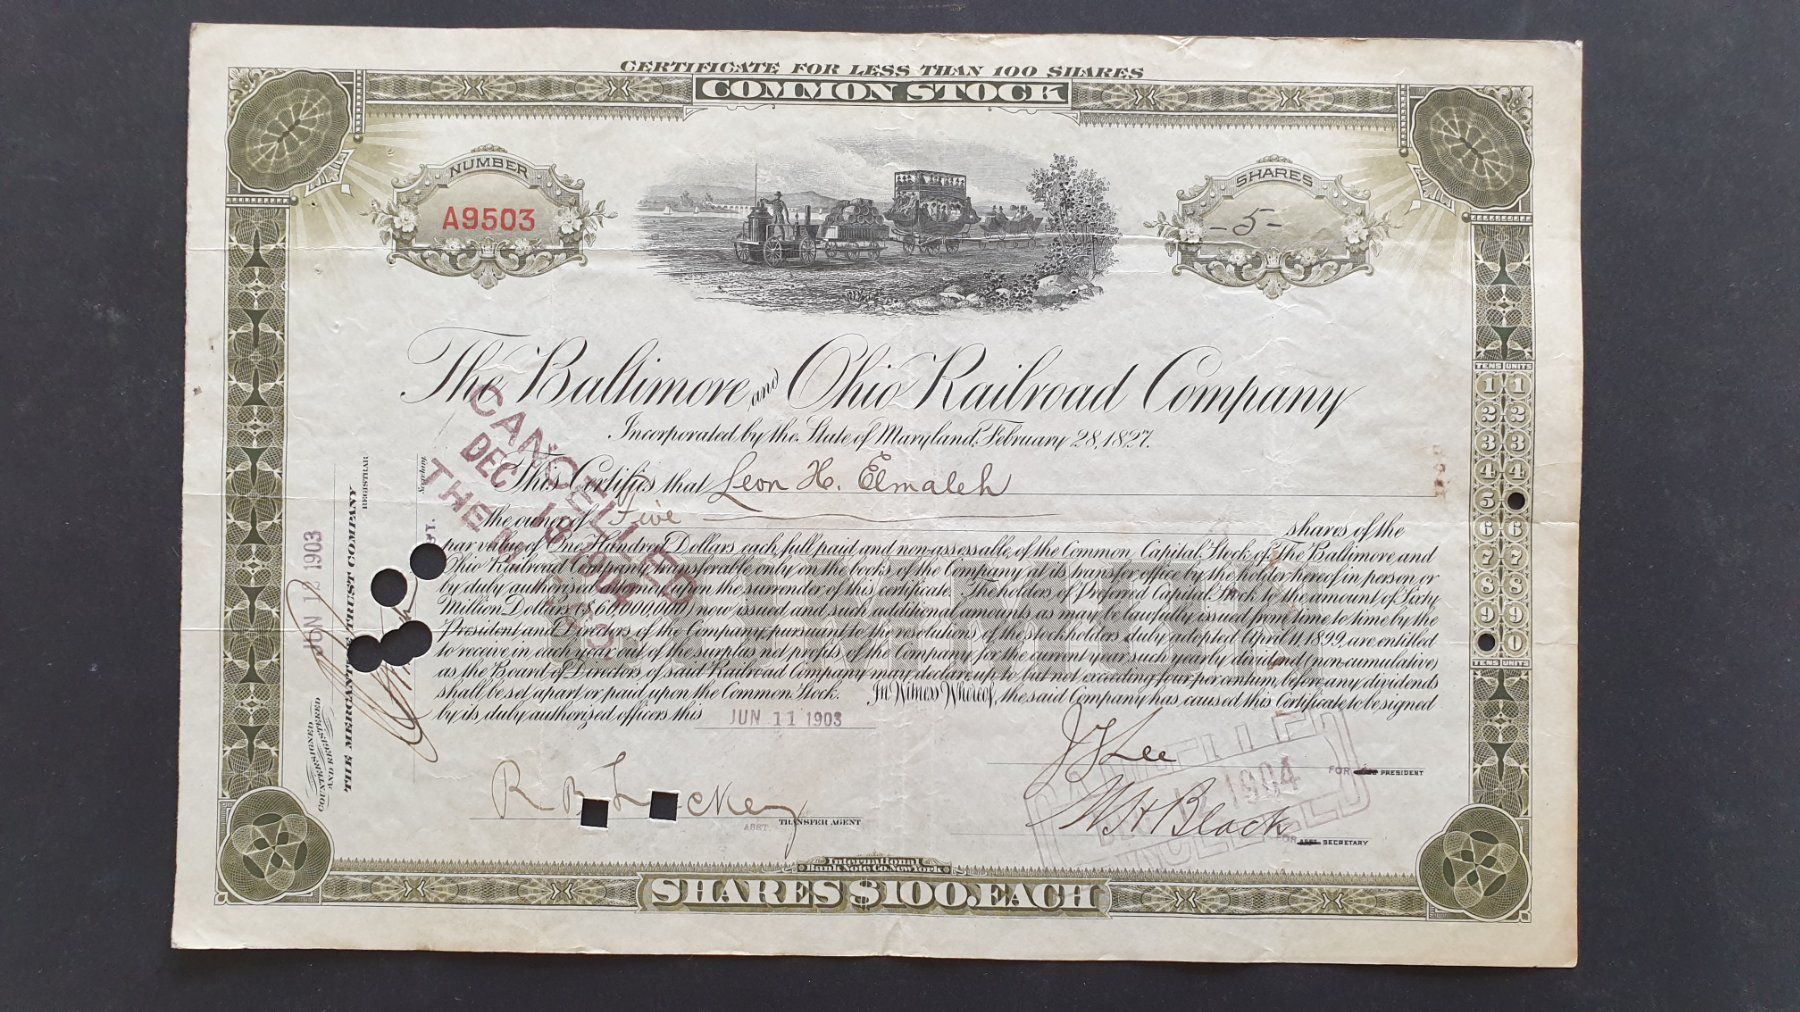 CERTIFICATE FOR LESS THAN 100 SHARES
COMMON STOCK
NUMBER
A9503
SHARES
-5-
The Baltimore and Ohio Railroad Company
Incorporated by the State of Maryland, February 28, 1827.
This Certifies that Leon H. Elmaleh
the owner of Five shares of the
par value of One Hundred Dollars each, full paid and non-assessable, of the Common Capital Stock of The Baltimore and
Ohio Railroad Company transferable only on the books of the Company at its transfer office by the holder hereof in person or
by duly authorized attorney upon the surrender of this certificate. The holders of Preferred Capital Stock to the amount of Sixty
Million Dollars ($60,000,000) now issued and such additional amounts as may be lawfully issued from time to time by the
President and Directors of the Company, pursuant to the resolutions of the stockholders duly adopted April 11 1899, are entitled
to receive in each year out of the surplus net profits of the Company for the current year such yearly dividend (non-cumulative)
as the Board of Directors of said Railroad Company may declare up to, but not exceeding four per centum, before any dividends
shall be set apart or paid upon the Common Stock. In Witness Whereof, the said Company has caused this Certificate to be signed
by its duly authorized officers this JUN 11 1903
CANCELLED
DEC 18
THE
JUNIOR
COUNTERSIGNED
AND REGISTERED
JUN 12 1903
THE MERCANTILE TRUST COMPANY
REGISTRAR
Secretary
R B Lackey
ASST. TRANSFER AGENT
J V Lee
FOR PRESIDENT
W H Black
FOR SECRETARY
1904
TENS UNITS
1 1
2 2
3 3
4 4
5
6 6
7 7
8 8
9 9
0
TENS UNITS
International
Bank Note Co. New York
SHARES $100. EACH